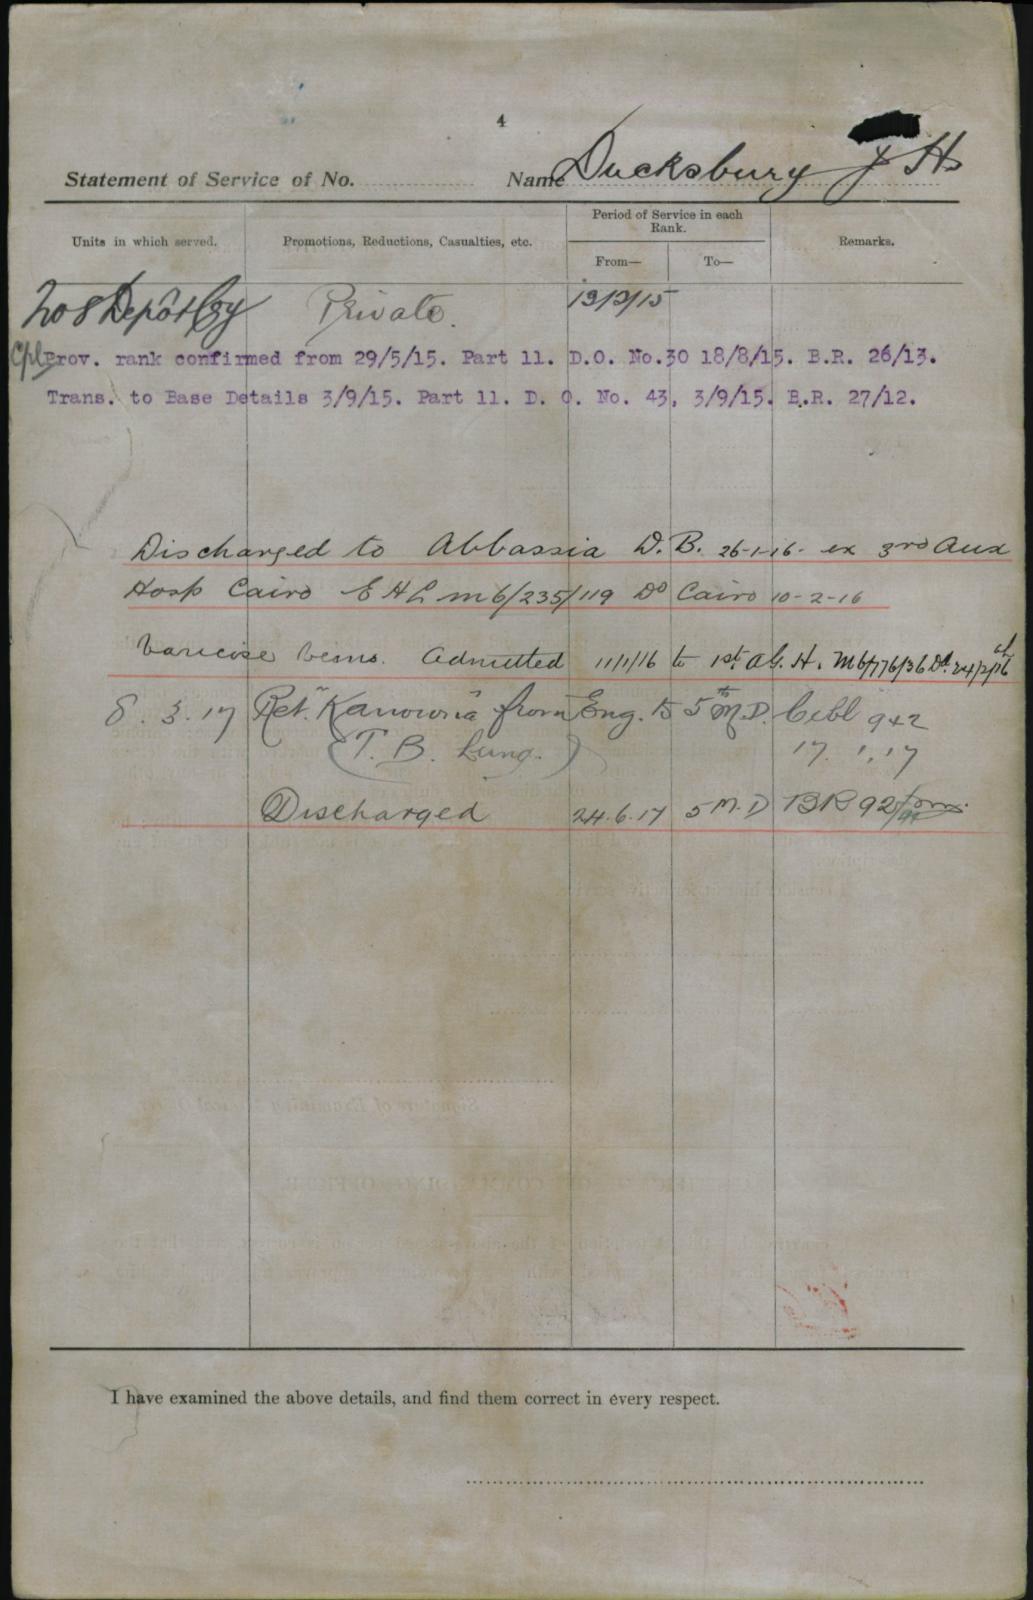 4
Statement of Service of No. Name Ducksbury J H
Units in which served. Promotions, Reductions, Casualties, etc. Period of Service in each Rank. From— To— Remarks.
No 8 Depôt Coy Private. 13/3/15
Cpl Prov. rank confirmed from 29/5/15. Part 11. D.O. No.30 18/8/15. B.R. 26/13.
Trans. to Base Details 3/9/15. Part 11. D. O. No. 43, 3/9/15. B.R. 27/12.
Discharged to Abbassia D.B. 26-1-16- ex 3rd Aux
Hosp Cairo E H L m6/235/119 Dd Cairo 10-2-16
Varicose Veins. Admitted 11/1/16 to 1st A G. H. M6/776/36 Dd. 24/2/16
8. 3. 17 Ret. "Kanowna" from Eng. to 5th M.D. Cebl 942
(T. B. Lung.) 17. 1. 17
Discharged 24.6.17 5 M. D BR 92/
I have examined the above details, and find them correct in every respect.